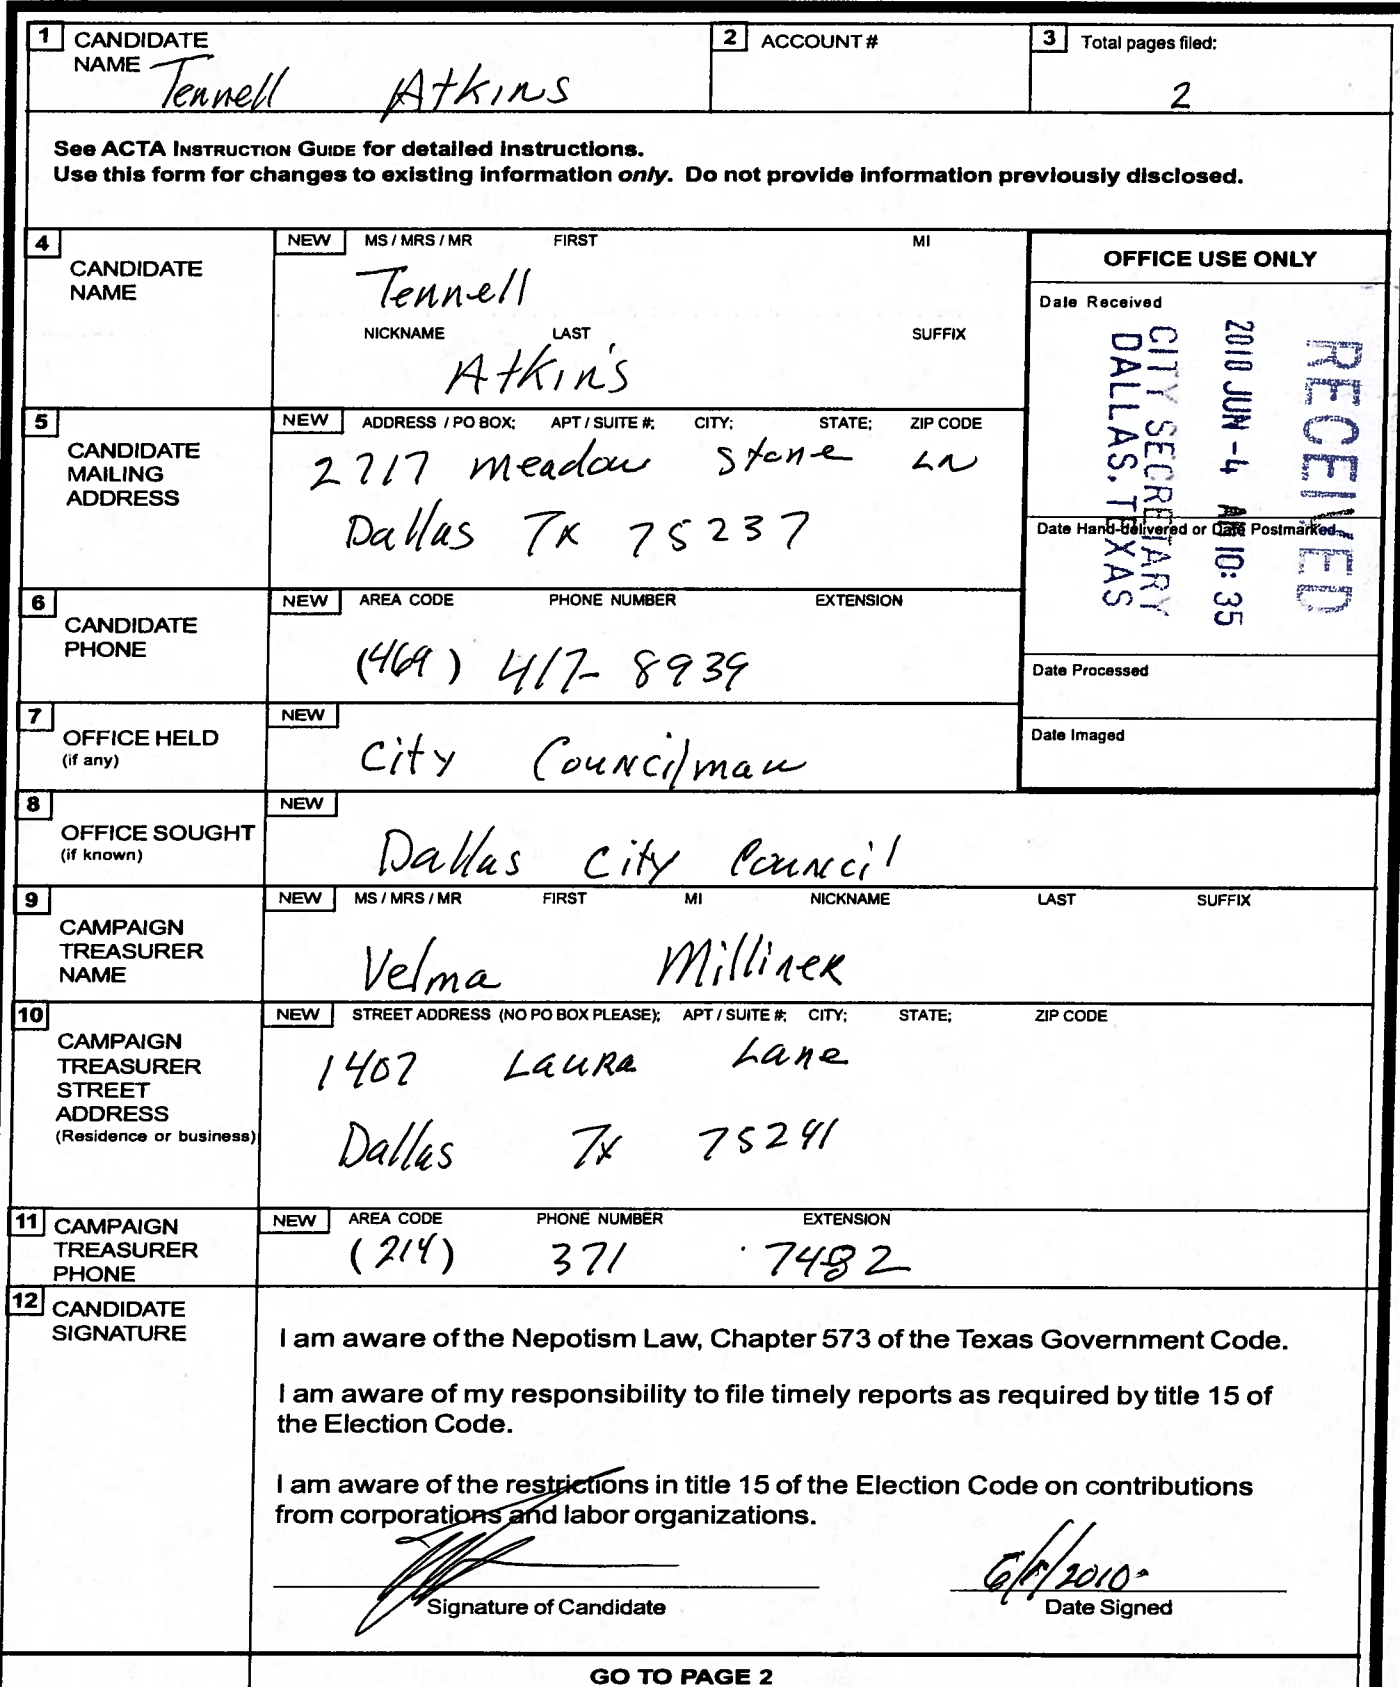 1 CANDIDATE NAME Tennell Atkins
2 ACCOUNT #
3 Total pages filed:
2
See ACTA INSTRUCTION GUIDE for detailed instructions.
Use this form for changes to existing information only. Do not provide information previously disclosed.
4 CANDIDATE NAME
NEW MS / MRS / MR FIRST MI
Tennell
NICKNAME LAST SUFFIX
Atkins
OFFICE USE ONLY
Date Received
RECEIVED
2010 JUN -4 AM 10:35
CITY SECRETARY
DALLAS, TEXAS
Date Hand-delivered or Date Postmarked
Date Processed
Date Imaged
5 CANDIDATE MAILING ADDRESS
NEW ADDRESS / PO BOX; APT / SUITE #; CITY; STATE; ZIP CODE
2717 Meadow Stone LN
Dallas Tx 75237
6 CANDIDATE PHONE
NEW AREA CODE PHONE NUMBER EXTENSION
(469) 417-8939
7 OFFICE HELD (if any)
NEW
City Councilman
8 OFFICE SOUGHT (if known)
NEW
Dallas City Council
9 CAMPAIGN TREASURER NAME
NEW MS / MRS / MR FIRST MI NICKNAME LAST SUFFIX
Velma Milliner
10 CAMPAIGN TREASURER STREET ADDRESS (Residence or business)
NEW STREET ADDRESS (NO PO BOX PLEASE); APT / SUITE #; CITY; STATE; ZIP CODE
1407 Laura Lane
Dallas Tx 75241
11 CAMPAIGN TREASURER PHONE
NEW AREA CODE PHONE NUMBER EXTENSION
(214) 371 7482
12 CANDIDATE SIGNATURE
I am aware of the Nepotism Law, Chapter 573 of the Texas Government Code.
I am aware of my responsibility to file timely reports as required by title 15 of
the Election Code.
I am aware of the restrictions in title 15 of the Election Code on contributions
from corporations and labor organizations.
Signature of Candidate
Date Signed
GO TO PAGE 2